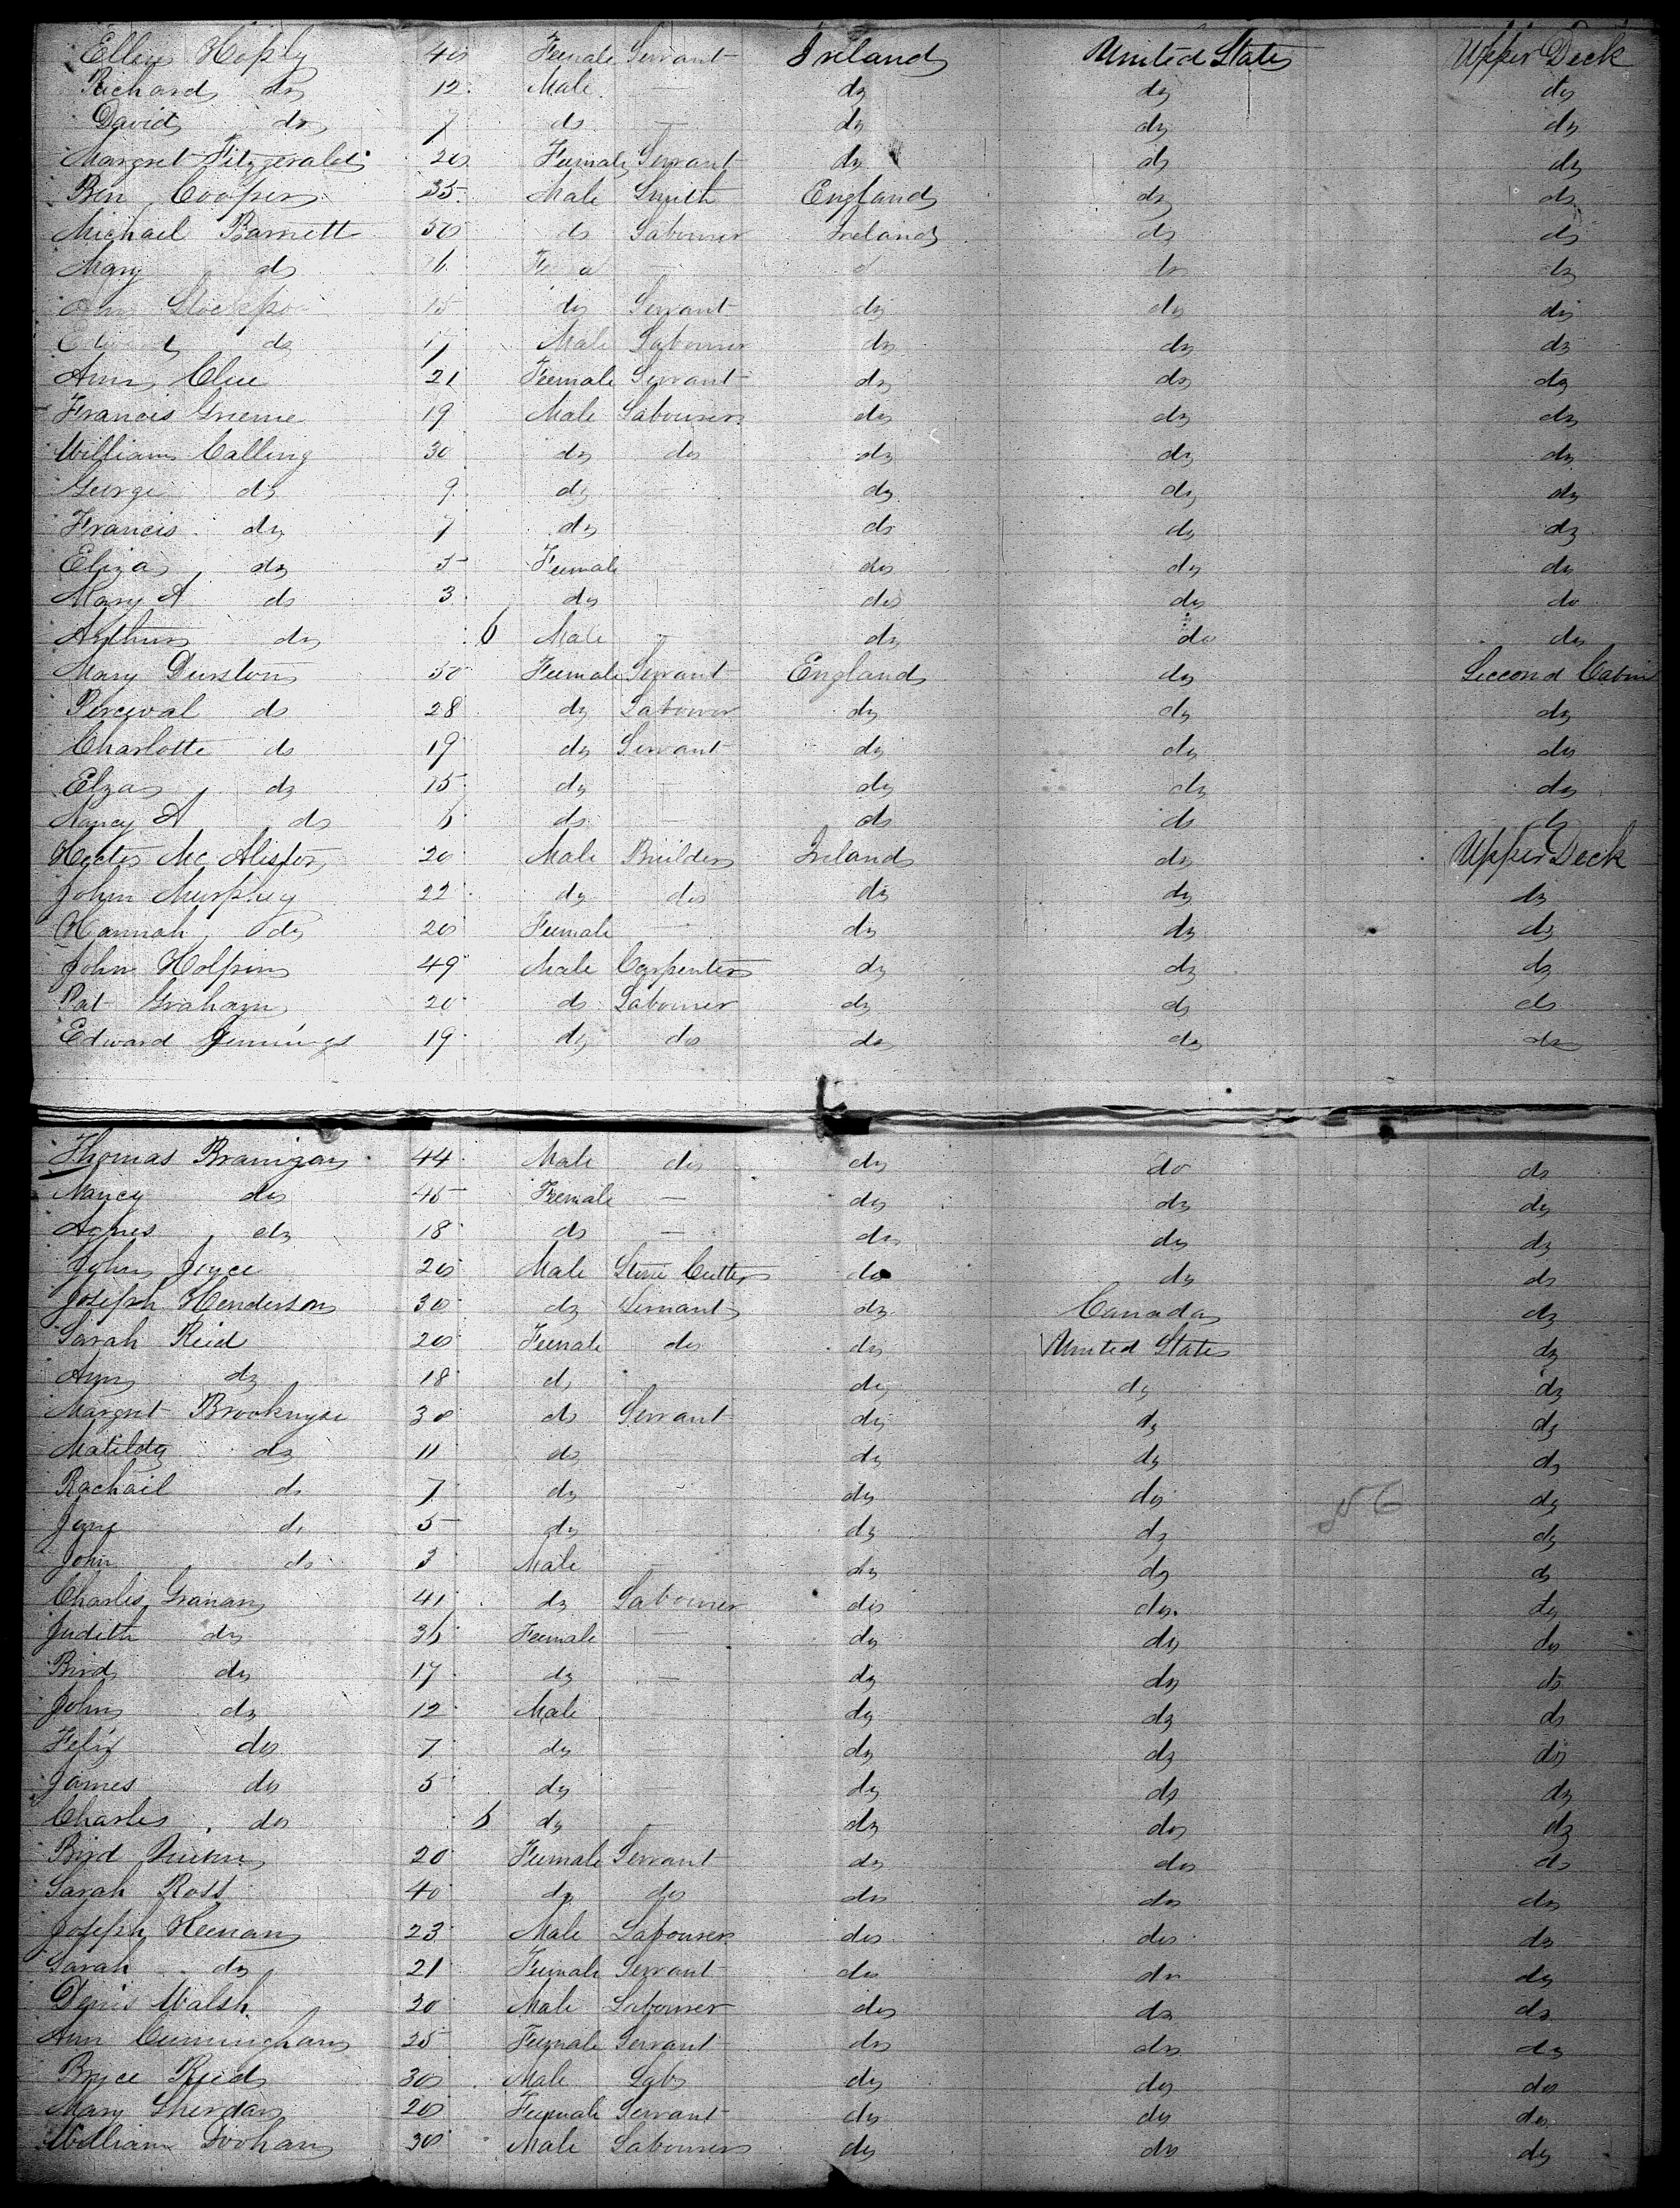 Ellen Hoply 40 Female Servant Ireland United States Upper Deck
Richard do 12 Male — do do do
David do 7 do — do do do
Margret Fitzgerald 20 Female Servant do do do
Ben Cooper 35 Male Smith England do do
Michael Barnett 50 do Labourer Ireland do do
Mary do — do do do
15 do Servant do do do
Edward do Male Labourer do do do
Ann Clue 21 Female Servant do do do
Francis Greene 19 Male Labourer do do do
William Calling 30 do do do do do
George do 9 do — do do do
Francis do 7 do do do do
Eliza do 5 Female do do do
Mary A do 3 do do do do
Arthur do 6 Male — do do do
Mary Durston 50 Female Servant England do Seccond Cabin
Percival do 28 do Labouror do do do
Charlotte do 19 do Servant do do do
Elza do 15 do — do do do
Nancy A do 6 do — do do do
Hector Mc Alister 20 Male Builder Ireland do Upper Deck
John Murphey 22 do do do do do
Hannah do 20 Female — do do do
John Holpin 49 Male Carpenter do do do
Pat Graham 20 do Labourer do do do
Edward Jennings 19 do do do do do
Thomas Branigan 44 Male do do do do
Nancy do 45 Female — do do do
Agnes do 18 do — do do do
John Joyce 20 Male Stone Cutter do do do
Joseph Henderson 30 do Servant do Canada do
Sarah Reid 20 Female do do United States do
Ann do 18 do do do do
Margret 30 do Servant do do do
Matilda do 11 do — do do do
Rachail do 7 do — do do do
Jane do 5 do — do do do
John do 3 Male — do do do
Charles Granan 41 do Labourer do do do
Judith do 36 Female — do do do
Bird do 17 do — do do do
John do 12 Male — do do do
Felix do 7 do — do do do
James do 5 do — do do do
Charles do 6 do — do do do
Bird Quinn 20 Female Servant do do do
Sarah Ross 40 do do do do do
Joseph Heenan 23 Male Labourer do do do
Sarah do 21 Female Servant do do do
Denis Walsh 20 Male Labourer do do do
Ann Cunningham 25 Female Servant do do do
Bryce Reid 30 Male Labr do do do
Mary Sherdan 20 Female Servant do do do
William Doohan 30 Male Labourer do do do